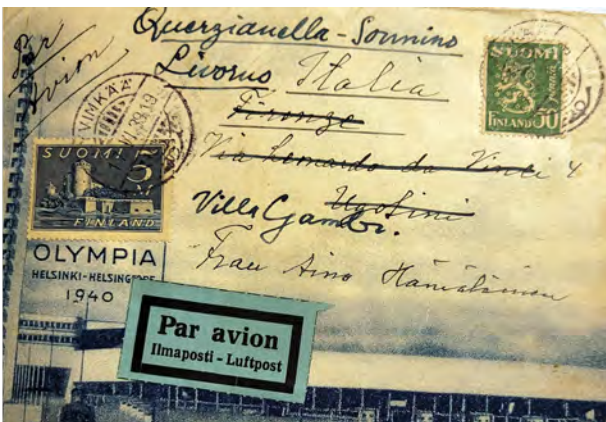 Par
avion
Querzianella - Sonnino
Livorno Italia
Firenze
Via Leonardo da Vinci 4
Ugolini
Villa Gambi.
Frau Aino Hämäläinen
SUOMI
FINLAND 50
SUOMI 5
FINLAND
OLYMPIA
HELSINKI-HELSINGFORS
1940
Par avion
Ilmaposti - Luftpost